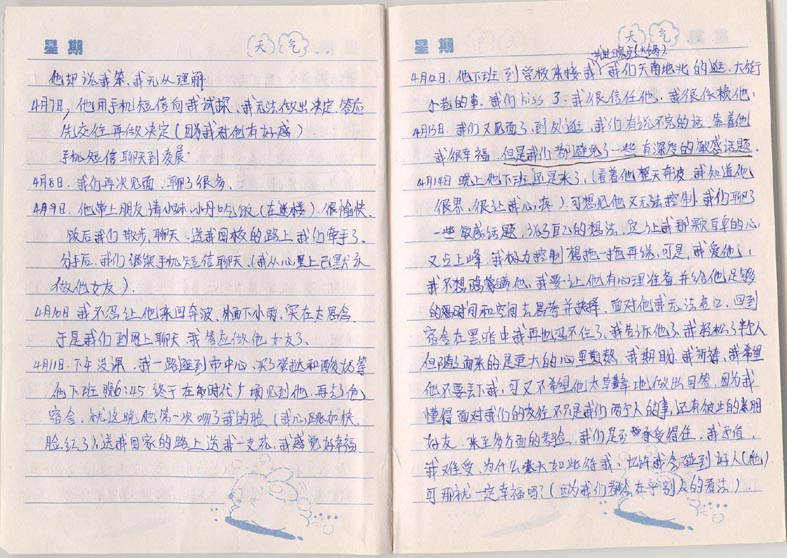 星期 天气
他却说我笨,我无从理解
4月7日,他用手机短信向我试探,我无法做出决定.答应
先交往再做决定(因为我对他有好感)
手机短信聊天到凌晨.
4月8日.我们再次见面.聊了很多.
4月9日.他带上朋友请小妹.小丹吃饭(在 楼).很愉快.
饭后我们散步,聊天.送我回校的路上,我们牵手了.
分手后.我们继续手机短信聊天.(我从心里上已默认
做他女友).
4月10日 我不忍让他来回奔波.外面下小雨,实在太 .
于是我们到网上聊天 我答应做他女友了.
4月11日.下午没课.我一路逛到市中心.买了蛋挞和酸奶等
他下班.晚6:45 终于在 时代广场见到他.再去了他
宿舍.就这晚他第一次吻了我的脸(我心跳加快.
脸红了).送我回家的路上送我一支花,我感觉好幸福
星期 天气
4月12日.他下班到学校来接我 我们天南地北的逛.大街
小巷的串.我们kiss了.我很信任他.我很依赖他.
4月13日.我们又见面了.到处逛.我们有说不完的话.靠着他
我很幸福.但是我们都避免了一些有深度的敏感话题.
4月14日 晚上他下班还是来了.(看着他整天奔波.我知道他
很累.很让我心疼)可想见他又无法控制.我们聊了
一些敏感话题,说了自己的想法,足以让我那颗自卑的心
又点上峰.我极力控制想拖一拖再练.可是,我爱他,
我不想隐瞒他.我要让他有心理准备并给他足够
的时间和空间去思考并抉择.面对他我无法启口.回到
宿舍在黑暗中我再也忍不住了.我告诉他了.我轻松了 个人
但随之而来的是更大的心里 .我期盼.我祈祷.我希望
他不要丢下我,可又不希望他太草率地做出回答.因为我
懂得面对我们的交往不只是我们两个人的事,还有彼此的亲朋
好友.来至多方面的考验.我们是否 承受得住.我矛盾.
我难受.为什么老天如此待我.也许我会碰到好人(他)
可那就一定幸福吗?(因为我们都会在乎别人的看法).